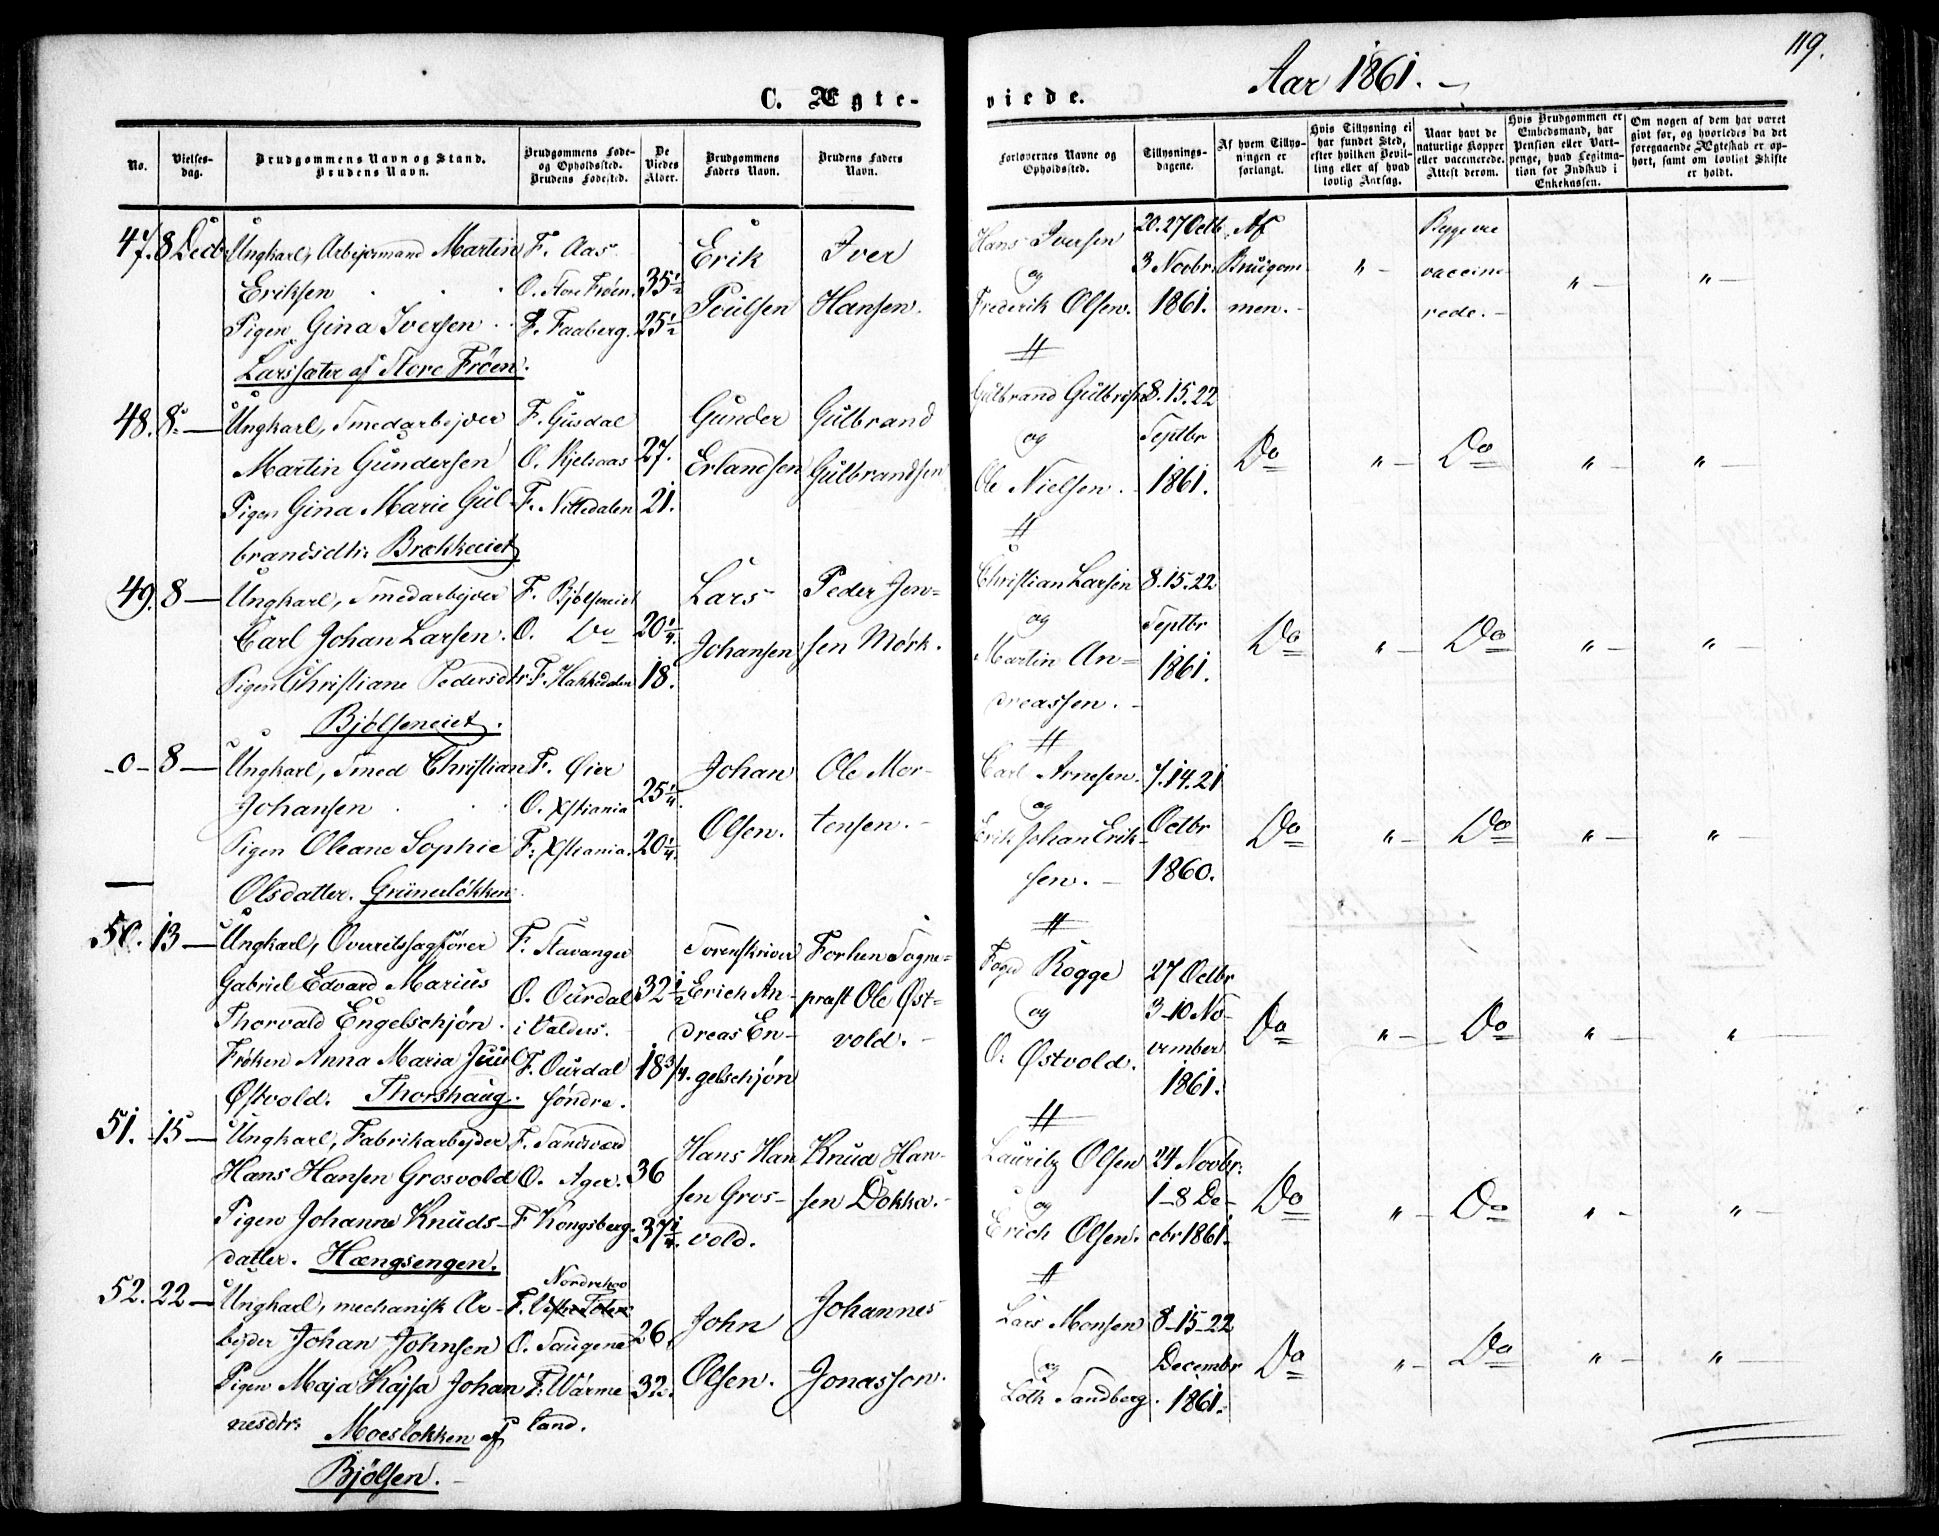 119.
Aar 1861.
C. Ægte-
viede.
No.
Vielses-
dag.
Brudgommens Navn og Stand.
Brudens Navn.
Brudgommens Føde-
og Opholdssted.
Brudens Fødested.
De
Viedes
Alder.
Brudgommens
Faders Navn.
Brudens Faders
Navn.
Forlovernes Navne og
Opholdssted.
Tillysnings-
dagene.
Af hvem Tillys-
ningen er
forlangt.
Hvis Tillysning ei
har fundet Sted,
efter hvilken Bevil-
ling eller af hvad
lovlig Aarsag.
Naar havt de
naturlige Kopper
eller vaccinerede.
Attest derom.
Hvis Brudgommen er
Embedsmand, har
Pension eller Vart-
penge, hvad Legitma-
tion for Indskud i
Enkekassen.
Om nogen af dem har været
givt før, og hvorledes da det
foregaaende Ægteskab er op-
hørt, samt om lovligt Skifte
er holdt.
47. 8 Decbr
Ungkarl, Arbejdsmand Martin
Eriksen
Pigen Gina Iversen
Larssæter af Store Frøen.
F. Aas
O. Store Frøen.
F. Faaberg.
35 1/2
25 1/2
Erik
Poulsen
Iver
Hansen.
Hans Iversen
og
Frederik Olsen.
20. 27 Octb
3 Novbr.
1861.
Af
Brudgom
men.
" -
Begge ere
vaccine
rede.
" -
" -
48. 8. -
Ungkarl, Smedarbejder
Martin Gundersen
Pigen Gina Marie Gul
brandsdtr. Brekkeeiet
F. Gusdal
O. Kjelsaas
F. Nittedalen
27.
21.
Gunder
Erlandsen
Gulbrand
Gulbrandsen
Gulbrand Gulbrisen
og
Ole Nielsen.
8. 15. 22
Septbr
1861.
Do
" -
Do
" -
" -
49. 8 -
Ungkarl, Smedarbejder
Carl Johan Larsen.
Pigen Christiane Pedersdtr
Bjølseneiet.
F. Bjølseneiet
O. Do
F. Hakkedalen
20 1/4.
18.
Lars
Johansen
Peder Jen=
sen Mörk.
Christian Larsen
og
Martin An=
dreassen.
8. 15. 22
Septbr
1861.
Do
" -
Do
" -
" -
-0- 8 -
Ungkarl, Smed Christian
Johansen
Pigen Oleane Sophie
Olsdatter. Grünerløkken.
F. Øier
O. Xstiania
F. Xstiania.
25 1/4.
20 1/4.
Johan
Olsen.
Ole Mor-
tensen.
Carl Arnesen.
og
Erik Johan Erik-
sen.
7. 14. 21
Octbr
1860.
Do
" -
Do
" -
" -
50. 13 -
Ungkarl, Overretssagfører
Gabriel Edvard Marius
Thorvald Engelschjøn.
Frøken Anna Maria Juul
Østvold. Thorshaug.
F. Stavanger
O. Ourdal
i Valders.
F. Ourdal
søndre.
32 1/2
18 3/4.
Sorenskriver
Erich An-
dreas En-
gelschjøn
Forhen Sogne-
præst Ole Øst=
vold.
Foged Rogge
og
O. Østvold.
27 Octbr
3-10 No-
vember
1861.
Do
" -
Do
" -
" -
51. 15 -
Ungkarl, Fabrikarbejder
Hans Hansen Grosvold
Pigen Johanne Knuds-
datter. Hængsengen.
F. Sandsværd
O. Ager.
F. Kongsberg.
36
37 1/4.
Hans Han
sen Gros-
vold.
Knud Han-
sen Dokka.
Lauritz Olsen
og
Erich Olsen.
24 Novbr.
1-8 De-
cbr 1861.
Do
" -
Do
" -
" -
52. 22 -
Ungkarl, mechanisk Ar-
bejder Johan Johnsen
Pigen Maja Kajsa Johan
nesdtr. Moesløkken af
Bjølsen.
Nordrehoo
F. Vestre Toten
O. Saugene
F. Värme
land.
26.
32.
John
Olsen.
Johannes
Jonasson.
Lars Monsen
og
Loth Sandberg.
8-15-22
Decembr
1861.
Do
" -
Do
" -
" -